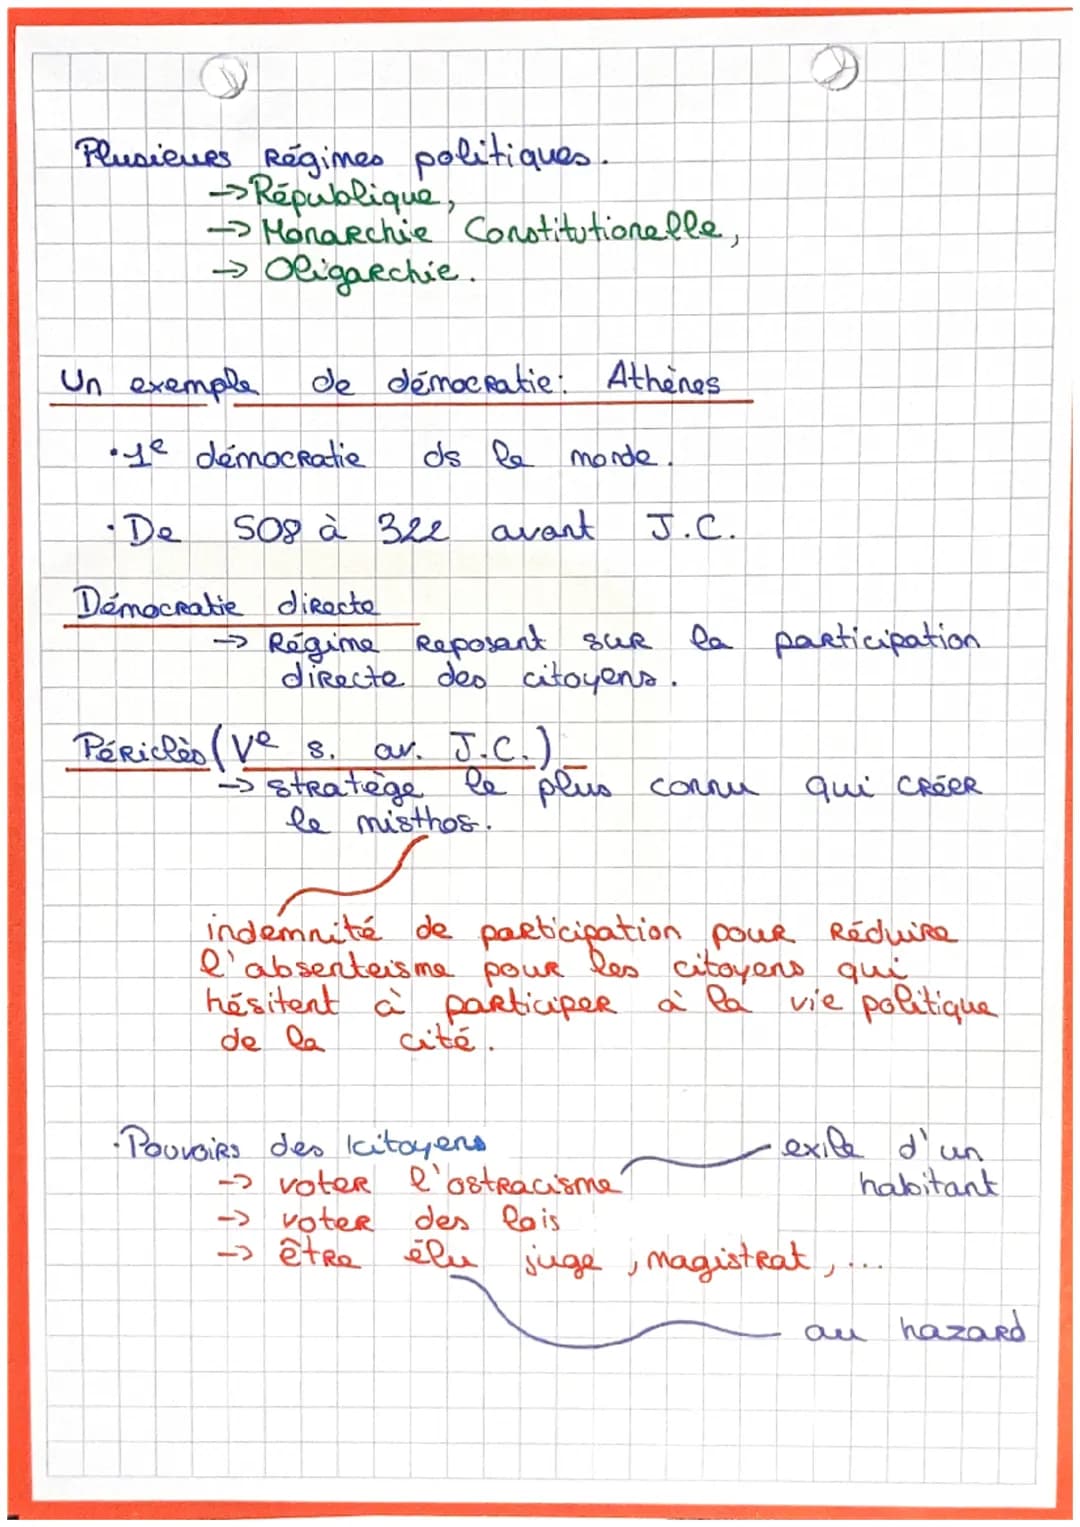 Plusieurs Régimes politiques.
→ République,
→ Monarchie Constitutionelle,
→ Oligarchie.
Un exemple de démocratie: Athènes
• 1e démocratie ds le monde.
• De 508 à 322 avant J.C.
Démocratie directe
→ Régime reposant sur la participation
directe des citoyens.
Périclès (Ve s. av. J.C.)
→ stratège le plus connu qui créer
le misthos.
indemnité de participation pour réduire
l'absenteisme pour les citoyens qui
hésitent à participer à la vie politique
de la cité.
• Pouvoirs des citoyens
exile d'un
habitant
→ voter l'ostracisme
→ voter des lois
→ être élu juge, magistrat, ...
au hazard